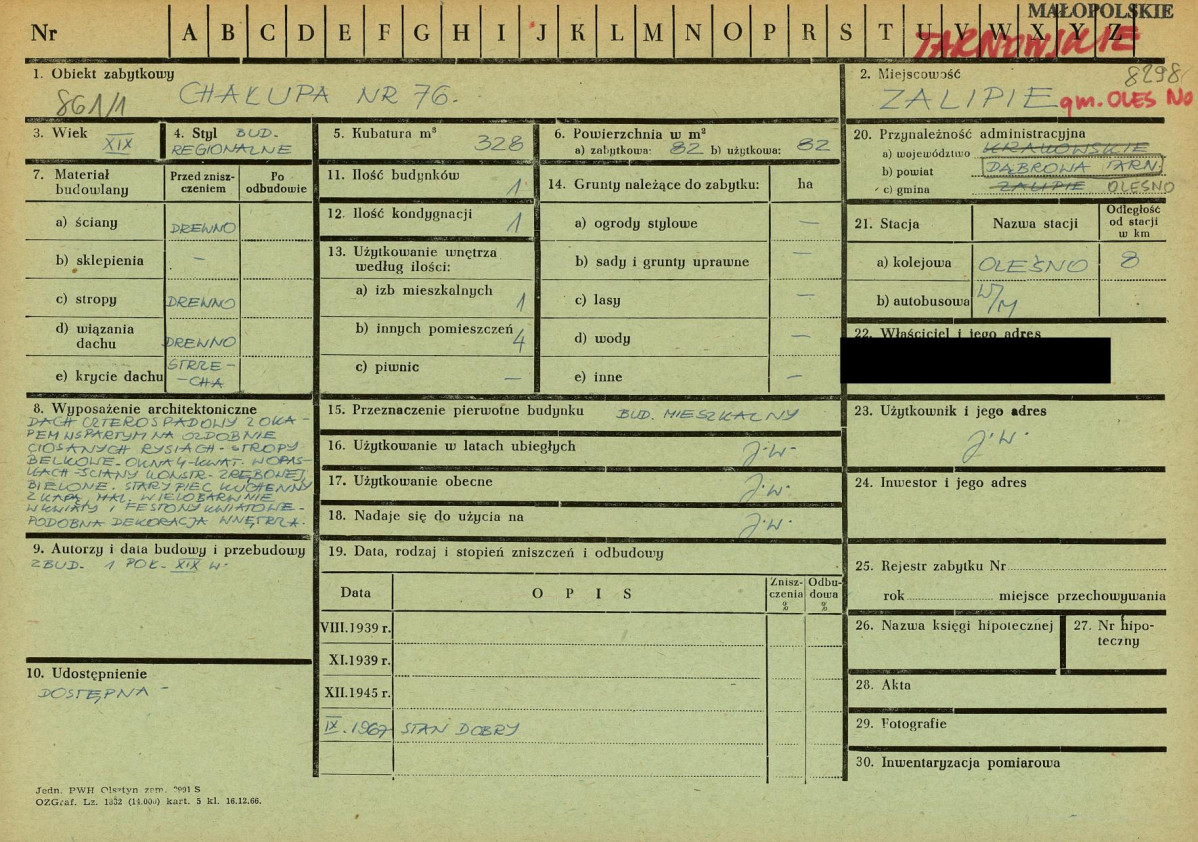 MAŁOPOLSKIE
Nr A B C D E F G H I J K L M N O P R S T U V W X Y Z
TARNOWSKIE
1. Obiekt zabytkowy
861/1 CHAŁUPA NR 76.
2. Miejscowość 8298
ZALIPIE gm. OLESNO
3. Wiek XIX
4. Styl BUD. REGIONALNE
5. Kubatura m³ 328
6. Powierzchnia w m²
a) zabytkowa: 82 b) użytkowa: 82
7. Materiał budowlany
Przed zniszczeniem
Po odbudowie
a) ściany DREWNO
b) sklepienia –
c) stropy DREWNO
d) wiązania dachu DREWNO
e) krycie dachu STRZE-
-CHA
8. Wyposażenie architektoniczne
DACH CZTEROSPADOWY Z OKA-
PEM WSPARTYM NA OZDOBNIE
CIOSANYCH RYSIACH - STROPY
BELKOWE - OKNA 4-KWAT. W OPAS-
KACH - ŚCIANY KONSTR. ZRĘBOWEJ
BIELONE. STARY PIEC KUCHENNY
Z KAPĄ, MAL. WIELOBARWNIE
W KWIATY I FESTONY KWIATOWE -
PODOBNA DEKORACJA WNĘTRZA.
9. Autorzy i data budowy i przebudowy
ZBUD. 1 POŁ. XIX W.
10. Udostępnienie
DOSTĘPNA –
11. Ilość budynków 1
12. Ilość kondygnacji 1
13. Użytkowanie wnętrza
według ilości:
a) izb mieszkalnych 1
b) innych pomieszczeń 4
c) piwnic –
14. Grunty należące do zabytku: ha
a) ogrody stylowe –
b) sady i grunty uprawne –
c) lasy –
d) wody –
e) inne –
15. Przeznaczenie pierwotne budynku BUD. MIESZKALNY
16. Użytkowanie w latach ubiegłych J.W.
17. Użytkowanie obecne J.W.
18. Nadaje się do użycia na J.W.
19. Data, rodzaj i stopień zniszczeń i odbudowy
Data OPIS Zniszczenia % Odbudowa %
VIII.1939 r.
XI.1939 r.
XII.1945 r.
IX.1967 STAN DOBRY
20. Przynależność administracyjna
a) województwo KRAKOWSKIE
b) powiat DĄBROWA TARN
c) gmina ZALIPIE OLESNO
21. Stacja Nazwa stacji Odległość od stacji w km
a) kolejowa OLEŚNO 8
b) autobusowa W/M
22. Właściciel i jego adres
23. Użytkownik i jego adres
J.W.
24. Inwestor i jego adres
25. Rejestr zabytku Nr
rok miejsce przechowywania
26. Nazwa księgi hipotecznej
27. Nr hipoteczny
28. Akta
29. Fotografie
30. Inwentaryzacja pomiarowa
Jedn. PWH Olsztyn zam. 2991 S
OZGraf. Lz. 1332 (14.000) kart. 5 kl. 16.12.66.